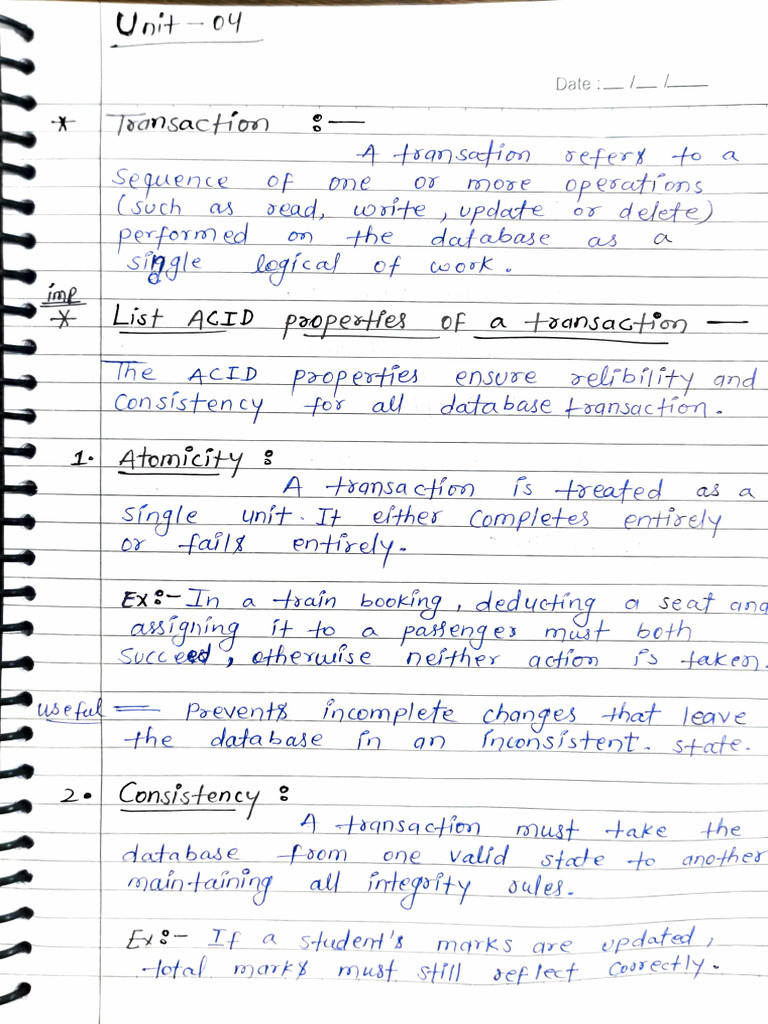 Unit - 04
Date : __ /__ /____
* Transaction :—
A transation refers to a
sequence of one or more operations
(such as read, write, update or delete)
performed on the database as a
single logical of work.
imp
* List ACID properties of a transaction —
The ACID properties ensure relibility and
consistency for all database transaction.
1. Atomicity :
A transaction is treated as a
single unit. It either completes entirely
or fails entirely.
Ex:- In a train booking, deducting a seat and
assigning it to a passenger must both
succeed, otherwise neither action is taken.
useful = prevents incomplete changes that leave
the database in an inconsistent. state.
2. Consistency :
A transaction must take the
database from one valid state to another
maintaining all integrity rules.
Ex:- If a student's marks are updated,
total marks must still reflect correctly.